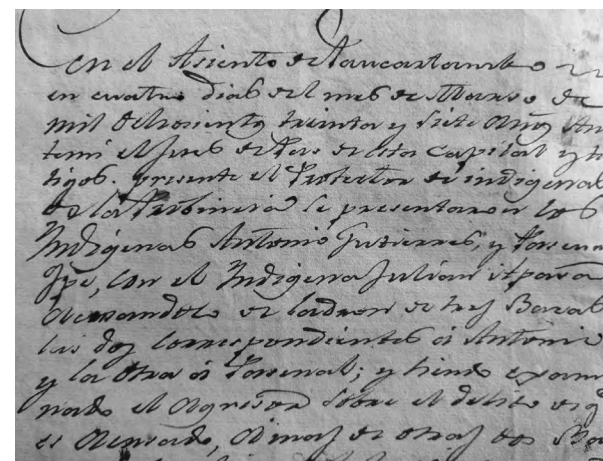 En el Asiento de Paucartambo
en cuatro dias del mes de Marso de
mil ochosientos treinta y siete años An
temi el Jues de Pas de esta Capital y te
tigos. presente el Protector de indigenas
de la Probincia se presentaron los
Indigenas Antonio Gutierres, y
con el Indigena Julian
Acusandolo de ladron de tres
las dos correspondientes á Antonio
y la otra á y siendo exami
nado el Agresor sobre el delito de q
es Acusado, Amas de otras dos